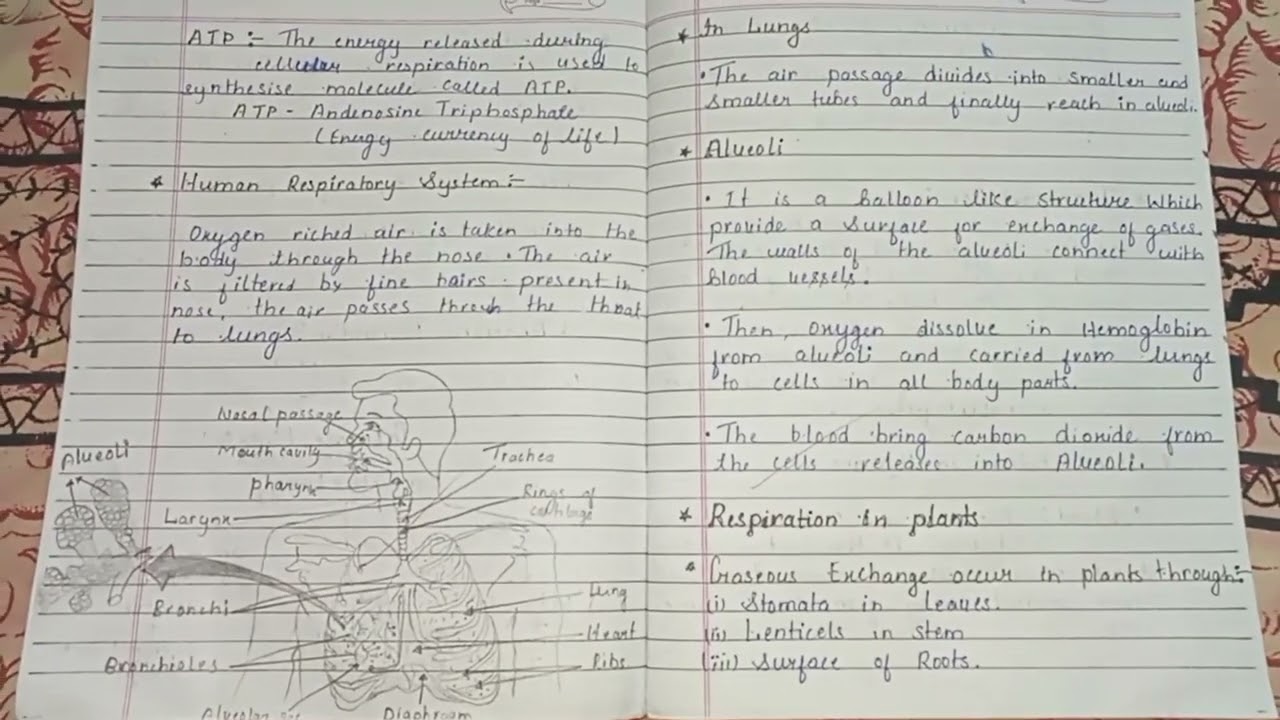 ATP :- The energy released during
cellular respiration is used to
synthesise molecule called ATP.
ATP - Andenosine Triphosphate
(Energy currency of life)
* Human Respiratory System:-
Oxygen riched air is taken into the
body through the nose. The air
is filtered by fine hairs present in
nose, the air passes throuh the throat
to lungs.
Nasal passage
Mouth cavity
Alveoli
Trachea
pharynx
Rings of
Larynx
Bronchi
Lung
Heart
Bronchioles
Ribs
Diaphragm
* In Lungs
• The air passage divides into smaller and
smaller tubes and finally reach in alveoli.
* Alveoli
• It is a balloon like structure which
provide a surface for exchange of gases.
The walls of the alveoli connect with
blood vessels.
• Then, oxygen dissolve in Hemoglobin
from alveoli and carried from lungs
to cells in all body parts.
• The blood bring carbon dioxide from
the cells releases into Alveoli.
* Respiration in plants
* Gaseous Exchange occur in plants through:-
(i) Stomata in leaves.
(ii) Lenticels in stem
(iii) Surface of Roots.